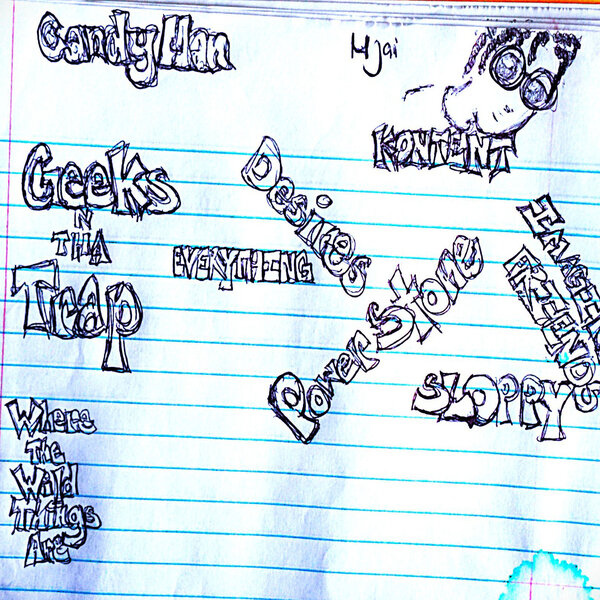 Candy Man
Mjai
KONTENT
Geeks
N
THA
Trap
Desires
EVERYTHING
Power Stone
FRIENDS
SLOPPY
Where
The
Wild
Things
Are